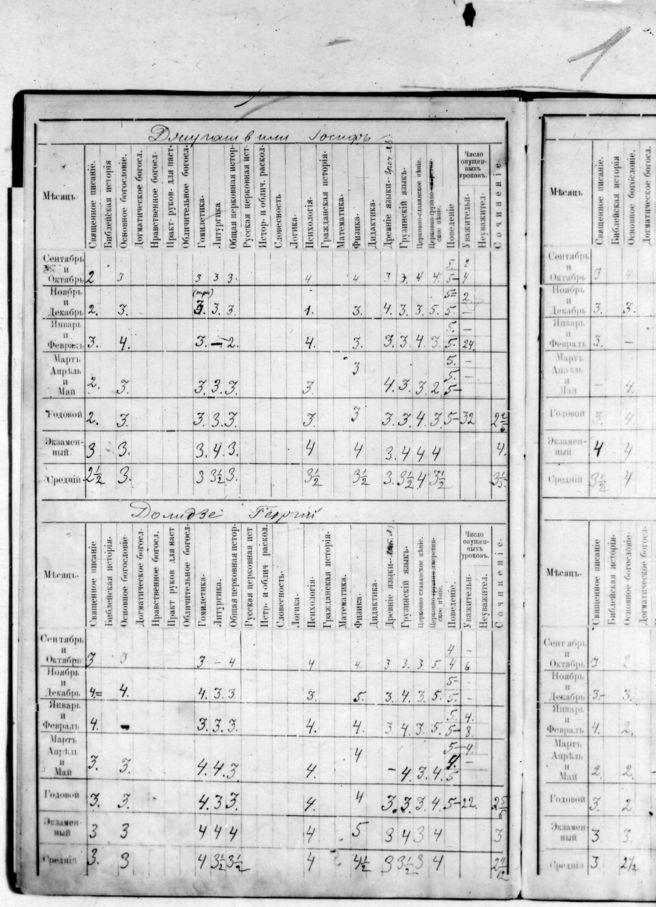 Джугашвили Іосифъ
Мѣсяцъ.
Священное писаніе.
Библейская исторія
Основное богословіе.
Догматическое богосл.
Нравственное богосл.
Практ руков. для паст-
Обличительное богосл.
Гомилетика-
Литургика
Общая церковная истор-
Русская церковная ист-
Истор- и облич. раскол.
Словесность
Логика.
Психологія-
Гражданская исторія-
Математика.
Физика-
Дидактика-
Древніе языки-
Грузинскій языкъ-
Церковно-славянское пѣніе.
Поведеніе
Число опущен-ныхъ уроковъ.
Уважительн-
Неуважител.
Сочиненіе.
Сентябрь и Октябрь 2 3 3 3 3 4 4 3 3. 4 4. 5. 5- 2 4
Ноябрь и Декабрь 2. 3. 3. 3. 3 1. 3. 4. 3. 3. 5. 5= 5- 2
Январь и Февраль 3. 4. 3. — 2. 4. 3. 3. 3 4. 3 5. 5. — 24
Мартъ Апрѣль и Май 2. 3. 3. 3. 3 3. 3 4. 3. 3. 2 5. 5- 5-
Годовой 2. 3. 3. 3. 3 3. 3 3. 3. 4. 3. 5- 32
Экзамен-ный 3 3. 3. 4. 3. 4 4 3. 4 4 4 4.
Средній 2½ 3. 3 3½ 3. 3½ 3½ 3. 3½ 4 3½
Долидзе Георгій
Мѣсяцъ.
Священное писаніе
Библейская исторія-
Основное богословіе-
Догматическое богосл-
Нравственное богосл.
Практ руков для паст
Обличительное богосл.
Гомилетика-
Литургика.
Общая церковная истор-
Русская церковная ист
Истр- и облич раскол.
Словесность-
Логика-
Психологія-
Гражданская исторія-
Математика.
Физика-
Дидактика-
Древніе языки-
Грузинскій языкъ-
Церковно-славянское пѣніе.
Поведеніе.
Число опущен-ныхъ уроковъ.
Уважительн-
Неуважител.
Сочиненіе.
Сентябрь и Октябрь 3 3 3 - 4 4 4. 3 3. 3 5 4 4 — 6
Ноябрь и Декабрь 4= 4. 4. 3. 3 3. 5. 3. 4. 3. 5. 5- 5-
Январь и Февраль 4. - 3. 3. 3. 4. 4. 3 4. 3. 5. 5. 5- 4. 8.
Мартъ Апрѣль и Май 3. 3. 4. 4. 3 4. 4 - 4. 3. 4.
Годовой 3. 3. 4. 3 3. 4. 4 3. 3. 3 4. 5- 22.
Экзамен-ный 3 3 4 4 4 4 5 3 4 3 4 3
Средній 3. 3 4 3½ 3½ 4 4½ 3 3½ 3 4
Мѣсяцъ.
Священное писаніе.
Библейская исторія
Основное богословіе.
Догматическое богосл
Сентябрь и Октябрь 3
Ноябрь и Декабрь 3. 3.
Январь и Февраль 3. —
Мартъ Апрѣль и Май - 4.
Годовой 3. 4.
Экзамен-ный 4 4
Средній 3½ 4
Мѣсяцъ-
Священное писаніе
Библейская исторія-
Основное богословіе.
Догматическое богосл
Сентябрь и Октябрь 3 2
Ноябрь и Декабрь 3.- 3.
Январь и Февраль 4. 2.
Мартъ Апрѣль и Май 2. 2.
Годовой 3. 2
Экзамен-ный 3 3.
Средній 3 2½